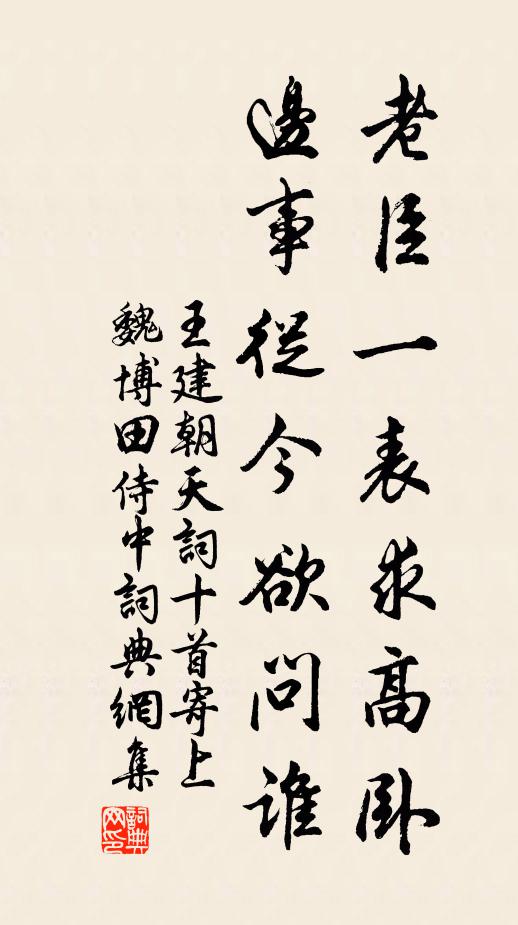 老臣一表求高卧
邊事從今欲問誰
王建朝天詞十首寄上
魏博田侍中詞典網集
詞典網印